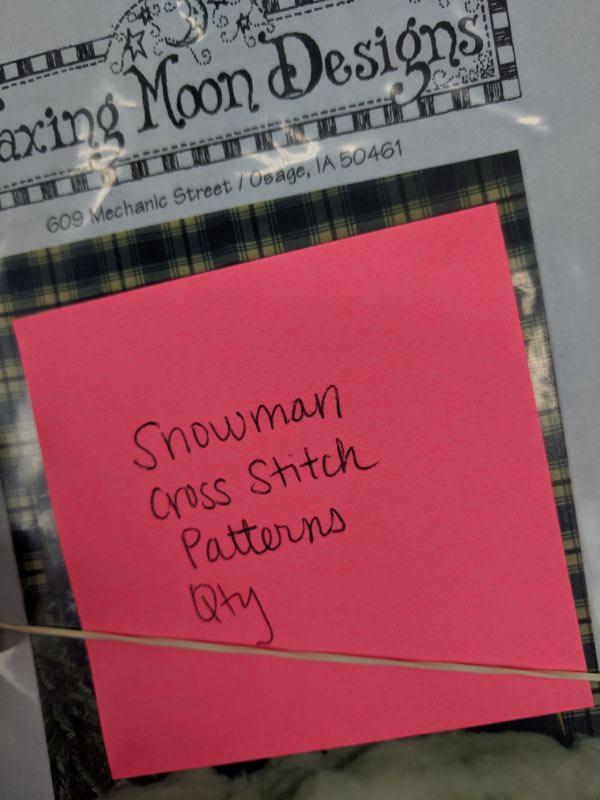 axing Moon Designs
609 Mechanic Street / Osage, IA 50461
Snowman
Cross Stitch
Patterns
Qty